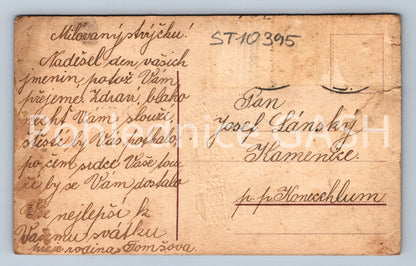 Milovaný strýčku!
Naděšel den vašich
jmenin, potož Vám
přejeme. Zdraví, blaho
nechť Vám slouží,
štěstí by Vás potkalo,
po čem srdce Vaše tou-
ží by se Vám dostalo
Vše nejlepší k
Vašemu svátku
přeje rodina Tomšova.
ST10395
Pan
Josef Lánský
Kamenice
p. p. Konecchlum
Pohlednice GASH